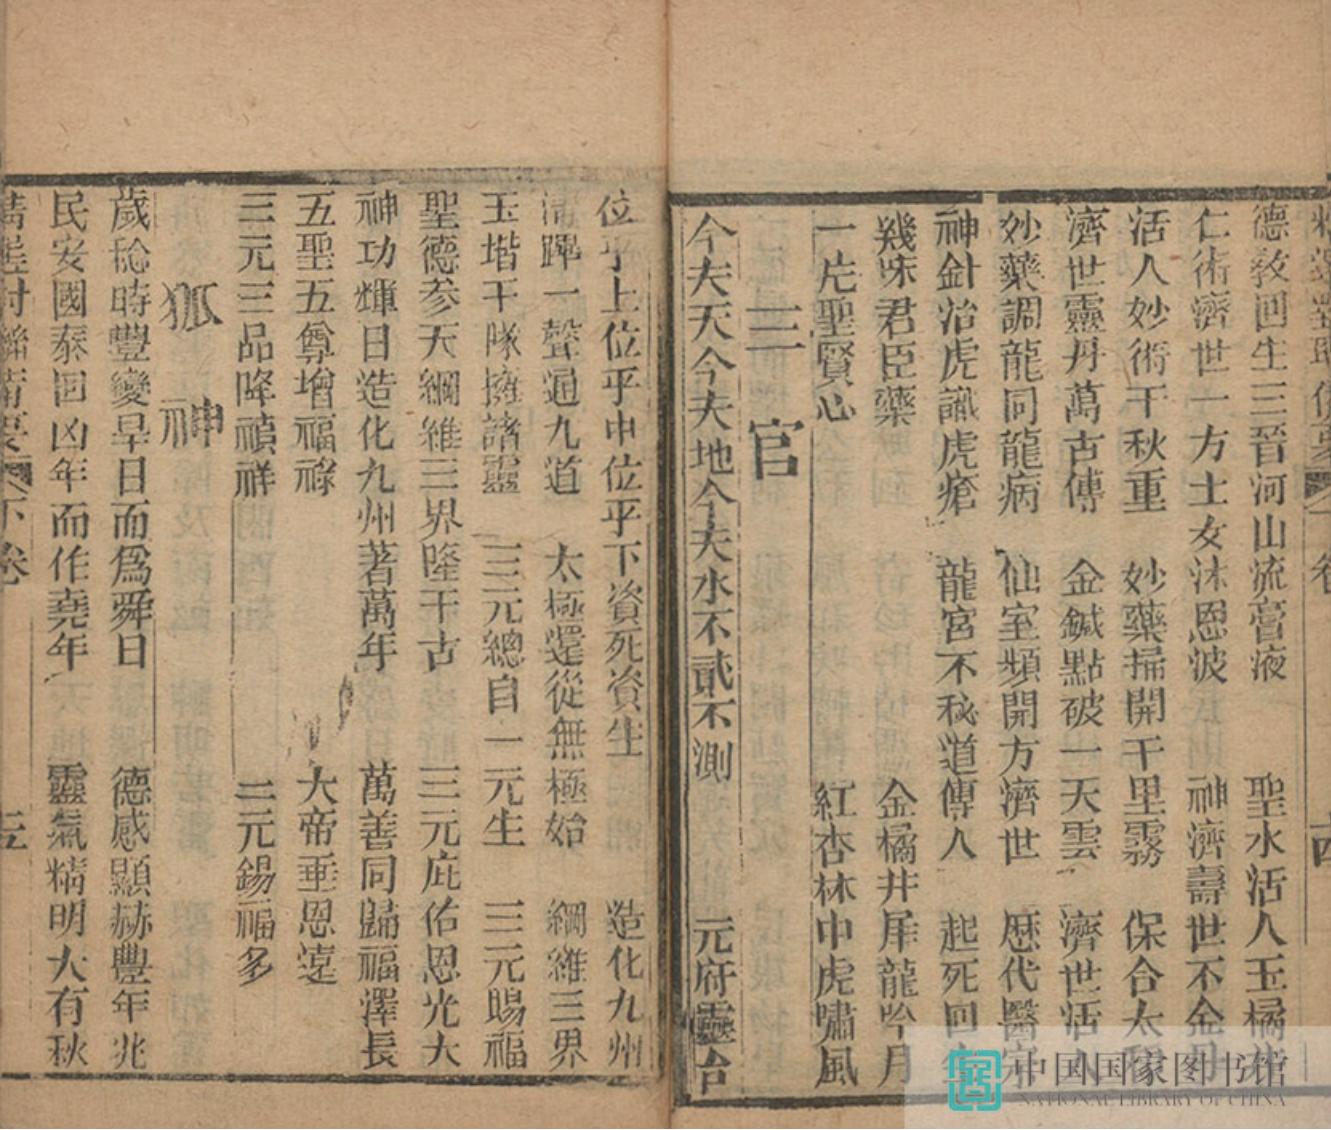 德教回生三晉河山流膏液 聖水活人玉橘
仁術濟世一方士女沐恩波 神濟壽世不金丹
活人妙術千秋重 妙藥掃開千里霧 保合太
濟世靈丹萬古傳 金鍼點破一天雲 濟世活人
妙藥調龍同龍病 仙室頻開方濟世 歷代醫宗
神針治虎識虎瘡 龍宮不秘道傳人 起死回
幾味君臣藥 金橘井犀龍吟月
一片聖賢心 紅杏林中虎嘯風
三官
今夫天今夫地今夫水不貳不測 元府靈台
位乎上位乎中位乎下資死資生 造化九州
清蹕一聲通九道 太極還從無極始 綱維三界
玉堦千隊擁諸靈 三元總自一元生 三元賜福
聖德參天綱維三界隆千古 三元庇佑恩光大
神功輝日造化九州著萬年 萬善同歸福澤長
五聖五尊增福祿 大帝垂恩遠
三元三品降禎祥 三元錫福多
狐神
歲稔時豐變旱日而為舜日 德感顯赫豐年兆
民安國泰回凶年而作堯年 靈氣精明大有秋
下卷 五
中国国家图书馆
NATIONAL LIBRARY OF CHINA